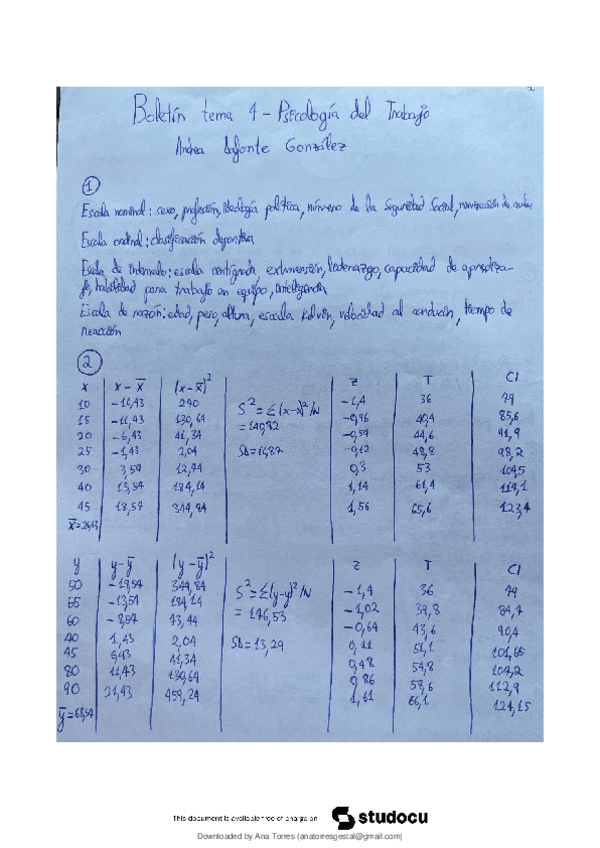 Boletín tema 1 - Psicología del Trabajo
Andrea Lafonte González
1
Escala nominal: sexo, profesión, ideología política, número de la Seguridad Social, numeración de aulas
Escala ordinal: clasificación deportiva
Escala de intervalo: escala centígrada, extraversión, liderazgo, capacidad de aprendiza-
je, habilidad para trabajo en equipo, inteligencia
Escala de razón: edad, peso, altura, escala Kelvin, velocidad al conducir, tiempo de
reacción
2
x x-x̄ (x-x̄)² Z T CI
10 -16,43 270 -1,4 36 79
15 -11,43 130,64 S²=Σ(x-x̄)²/N -0,96 40,4 85,6
20 -6,43 41,34 =140,82 -0,54 44,6 91,9
25 -1,43 2,04 SD=11,87 -0,12 48,8 98,2
30 3,57 12,74 0,3 53 104,5
40 13,57 184,14 1,14 61,4
45 18,57 344,84 1,56 65,6 123,4
x̄=26,43
y y-ȳ (y-ȳ)² Z T CI
50 -18,57 344,84 S²=Σ(y-y)²/N -1,4 36 79
55 -13,57 184,14 =176,53 -1,02 39,8 84,7
60 -8,57 73,44 -0,64 43,6 90,4
70 1,43 2,04 SD=13,29 0,11 51,1 101,65
75 6,43 41,34 0,48 54,8
80 11,43 130,64 0,86 58,6 112,9
90 21,43 459,24 1,61 66,1 124,15
ȳ=68,57
This document is available free of charge on studocu
Downloaded by Ana Torres (anatorresgestal@gmail.com)